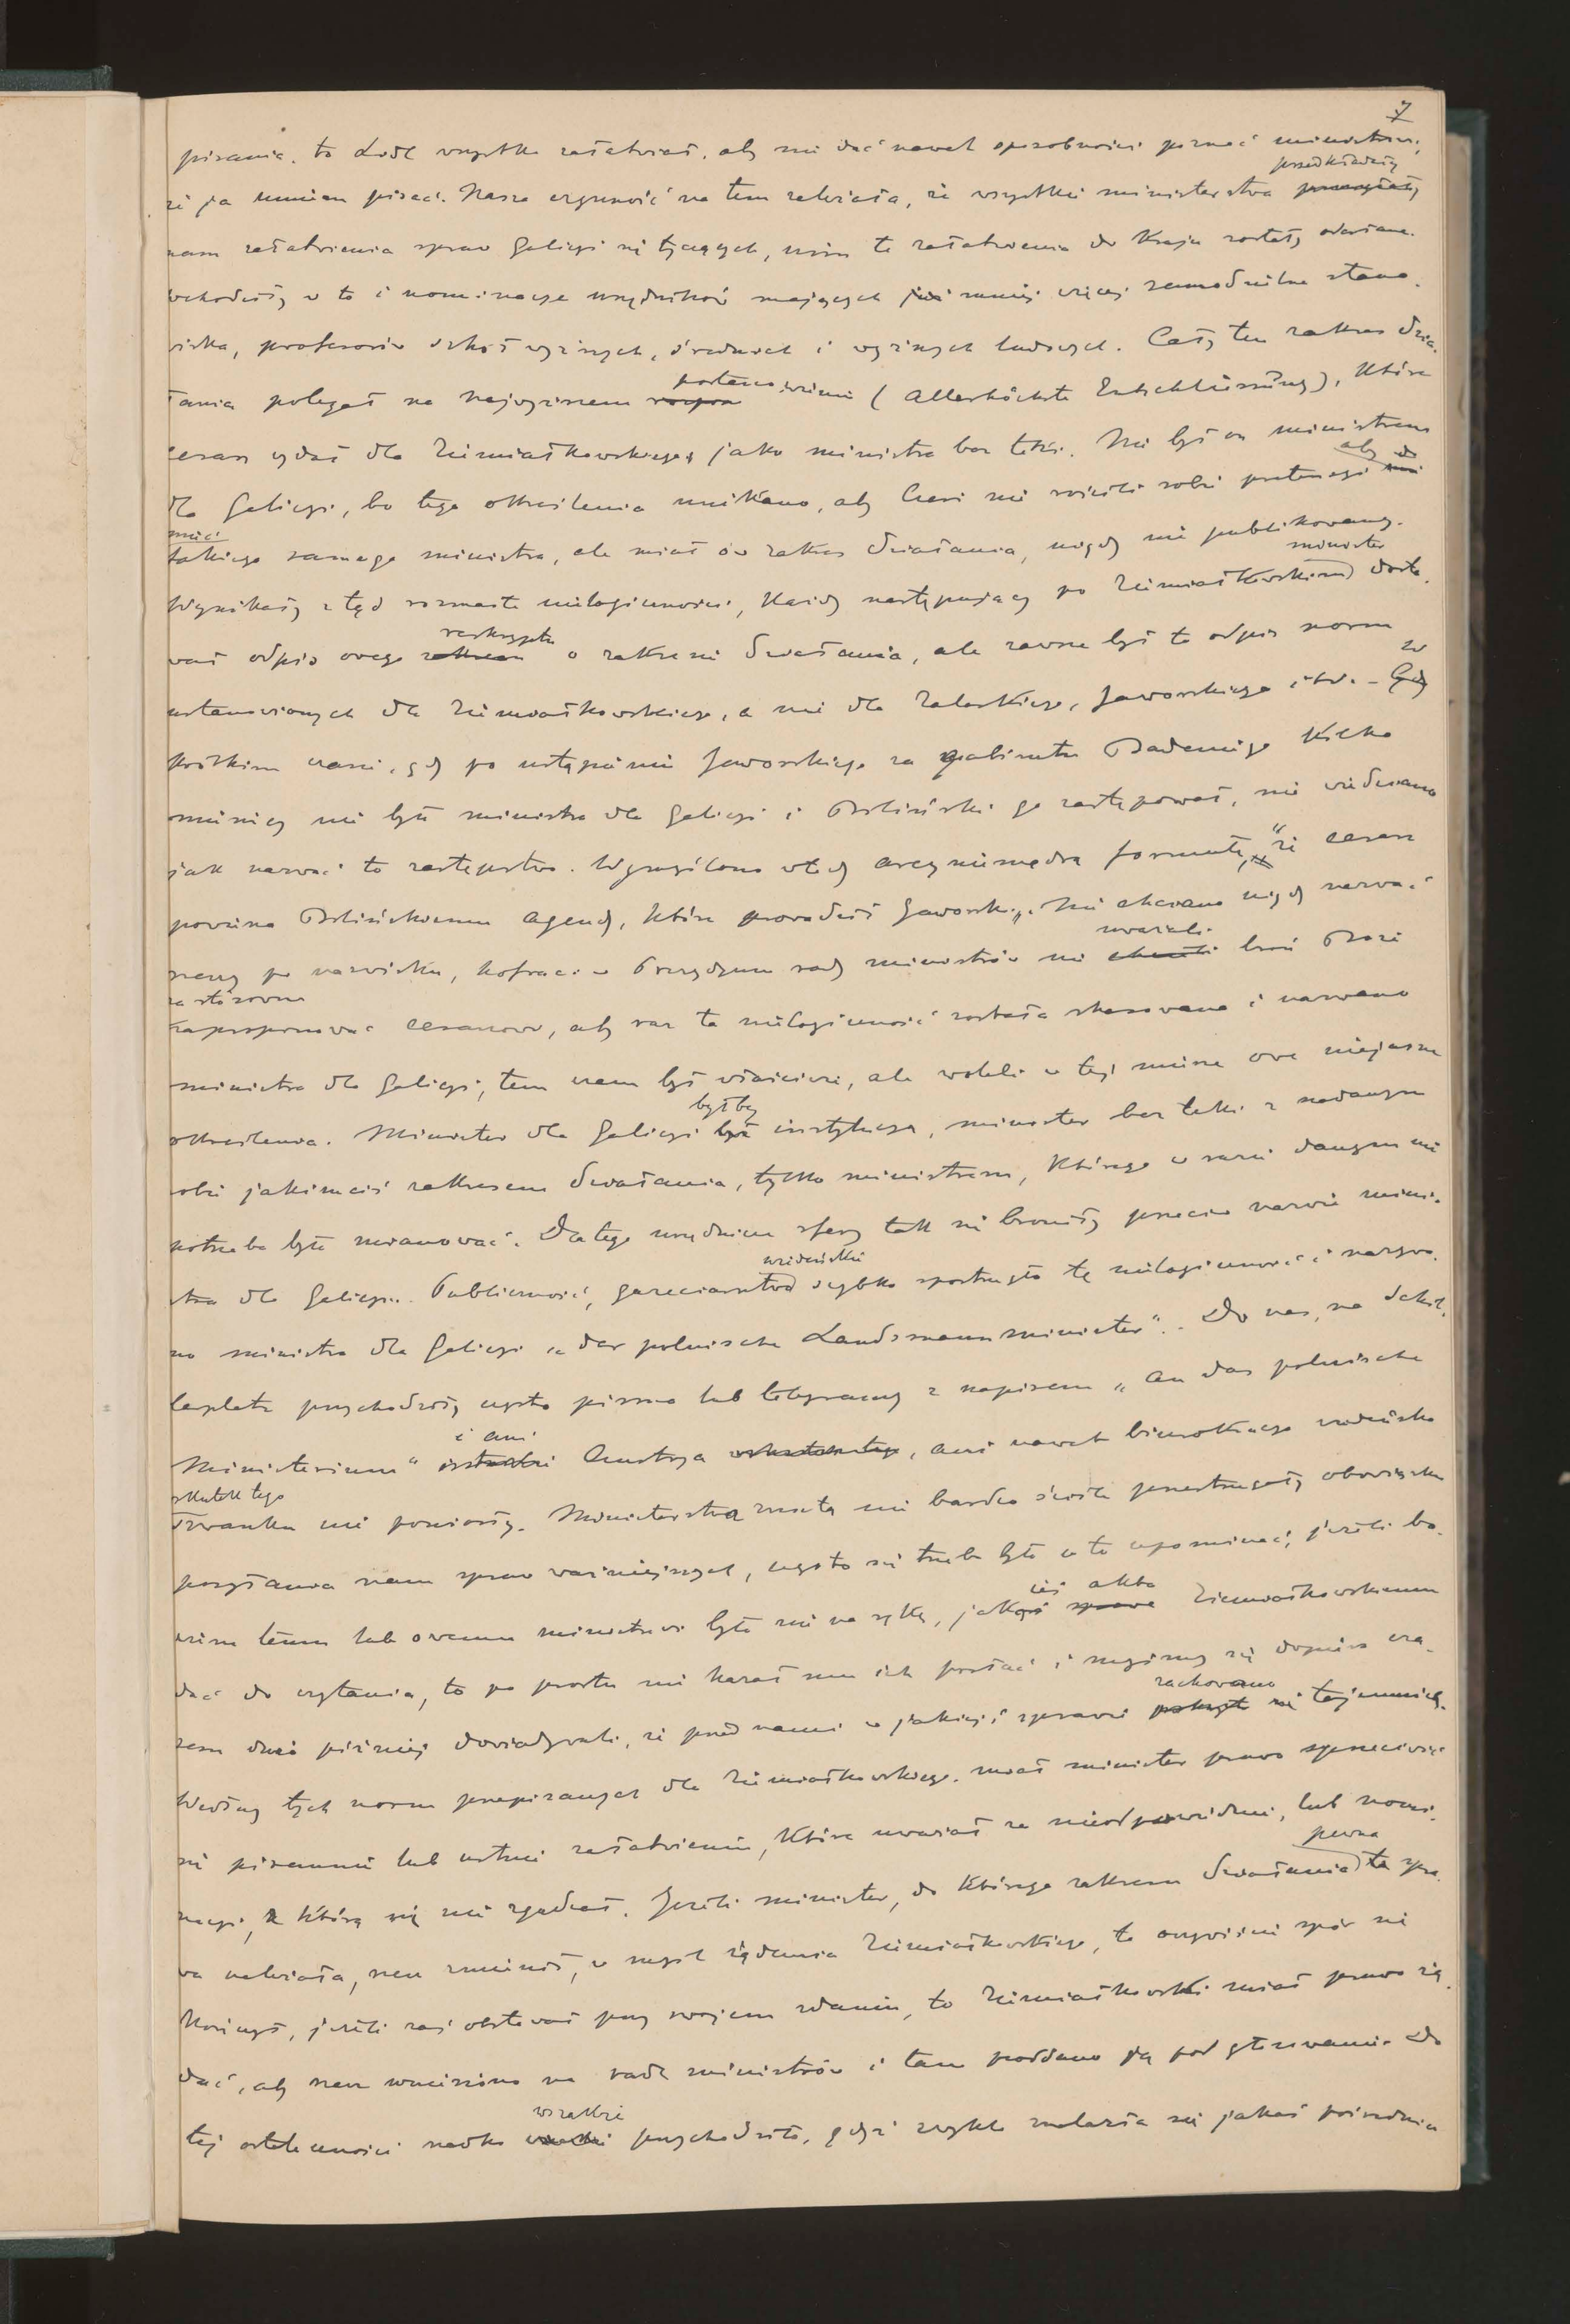 7
pisania, to Lodl wszystko załatwiał, aby nie dać nawet sposobności poznać ministrowi,
że ja umiem pisać. Nasza czynność na tem zależała, że wszystkie ministerstwa przedkładały
nam załatwienia spraw Galicyi się tyczących, nim te załatwienia do kraju zostały odesłane.
Wchodziły w to i nominacye urzędników mających mniej więcej samodzielne stano-
wiska, profesorów szkół wyższych, średnich i wyższych ludowych. Cały ten zakres dzia-
łania polegał na najwyższem postanowieniu (Allerhöchste Entschliessung), które
cesarz wydał dla Ziemiałkowskiego, jako ministra bez teki. Nie był on ministrem
dla Galicyi, bo tego określenia unikano, aby Czesi nie rościli sobie pretensyi aby do
mieć
takiego samego ministra, ale miał ów zakres działania, nigdy nie publikowany.
Wynikały z tąd rozmaite nielogiczności, każdy następujący po Ziemiałkowskim minister dosta-
wał odpis owego reskryptu o zakresie działania, ale zawsze był to odpis norm
ustanowionych dla Ziemiałkowskiego, a nie dla Zaleskiego, Jaworskiego itd. – W
krótkim czasie, gdy po ustąpieniu Jaworskiego za gabinetu Badeniego kilka
miesięcy nie było ministra dla Galicyi i Biliński go zastępował, nie wiedziano
jak nazwać to zastępstwo. Wymyślono wtedy arcyniemądrą formułę, "że cesarz
powierza Bilińskiemu agendy, które prowadził Jaworski". Nie chciano nigdy nazwać
rzeczy po nazwisku, hofraci w Prezydyum rady ministrów nie uważali broń Boże
za stosowne
zaproponować cesarzowi, aby raz ta nielogiczność została skasowana i nazwano
ministra dla Galicyi, tem czem był właściwie, ale woleli w tej mierze owe niejasne
określenia. Minister dla Galicyi byłby instytucyą, minister bez teki z nadanym
sobie jakimciś zakresem działania, tylko ministrem, którego w razie danym nie
potrzeba było mianować. Dlatego urzędnicze sfery tak się broniły przeciw nazwie mini-
stra dla Galicyi. Publiczność, gazeciarstwo wiedeńskie szybko spostrzegło tę nielogiczność i nazywa-
no ministra dla Galicyi "der polnische Landsmannminister". Do nas, na Schil-
lerplatz przychodziły często pisma lub telegramy z napisem "An das polnische
Ministerium" i ani Austrya, ani nawet biurokracya wiedeńska
skutek tego
szwanku nie poniosły. Ministerstwa zresztą nie bardzo ściśle przestrzegały obowiązku
posyłania nam spraw ważniejszych, często się trzeba było o to upominać; jeżeli bo-
wiem temu lub owemu ministrowi było nie na rękę, jakieś akta Ziemiałkowskiemu
dać do czytania, to po prostu nie kazał mu ich posłać i myśmy się dopiero cza-
sem dużo później dowiadywali, że przed nami w jakiejś sprawie zachowano tajemnicę.
Według tych norm przepisanych dla Ziemiałkowskiego, miał minister prawo sprzeciwić
się pisemnie lub ustnie załatwieniu, które uważał za nieodpowiednie, lub nomi-
nacyi, z którą się nie zgadzał. Jeżeli minister, do którego zakresu działania pewna spra-
wa należała, rzecz zmienił, w myśl żądania Ziemiałkowskiego, to oczywiście spór się
kończył, jeżeli zaś obstawał przy swojem zdaniu, to Ziemiałkowski miał prawo żą-
dać, aby rzecz wniesiono na radę ministrów i tam poddano ją pod głosowanie. Do
tej ostateczności rzadko wszakże przychodziło, gdyż zwykle znalazła się jakaś pośrednia